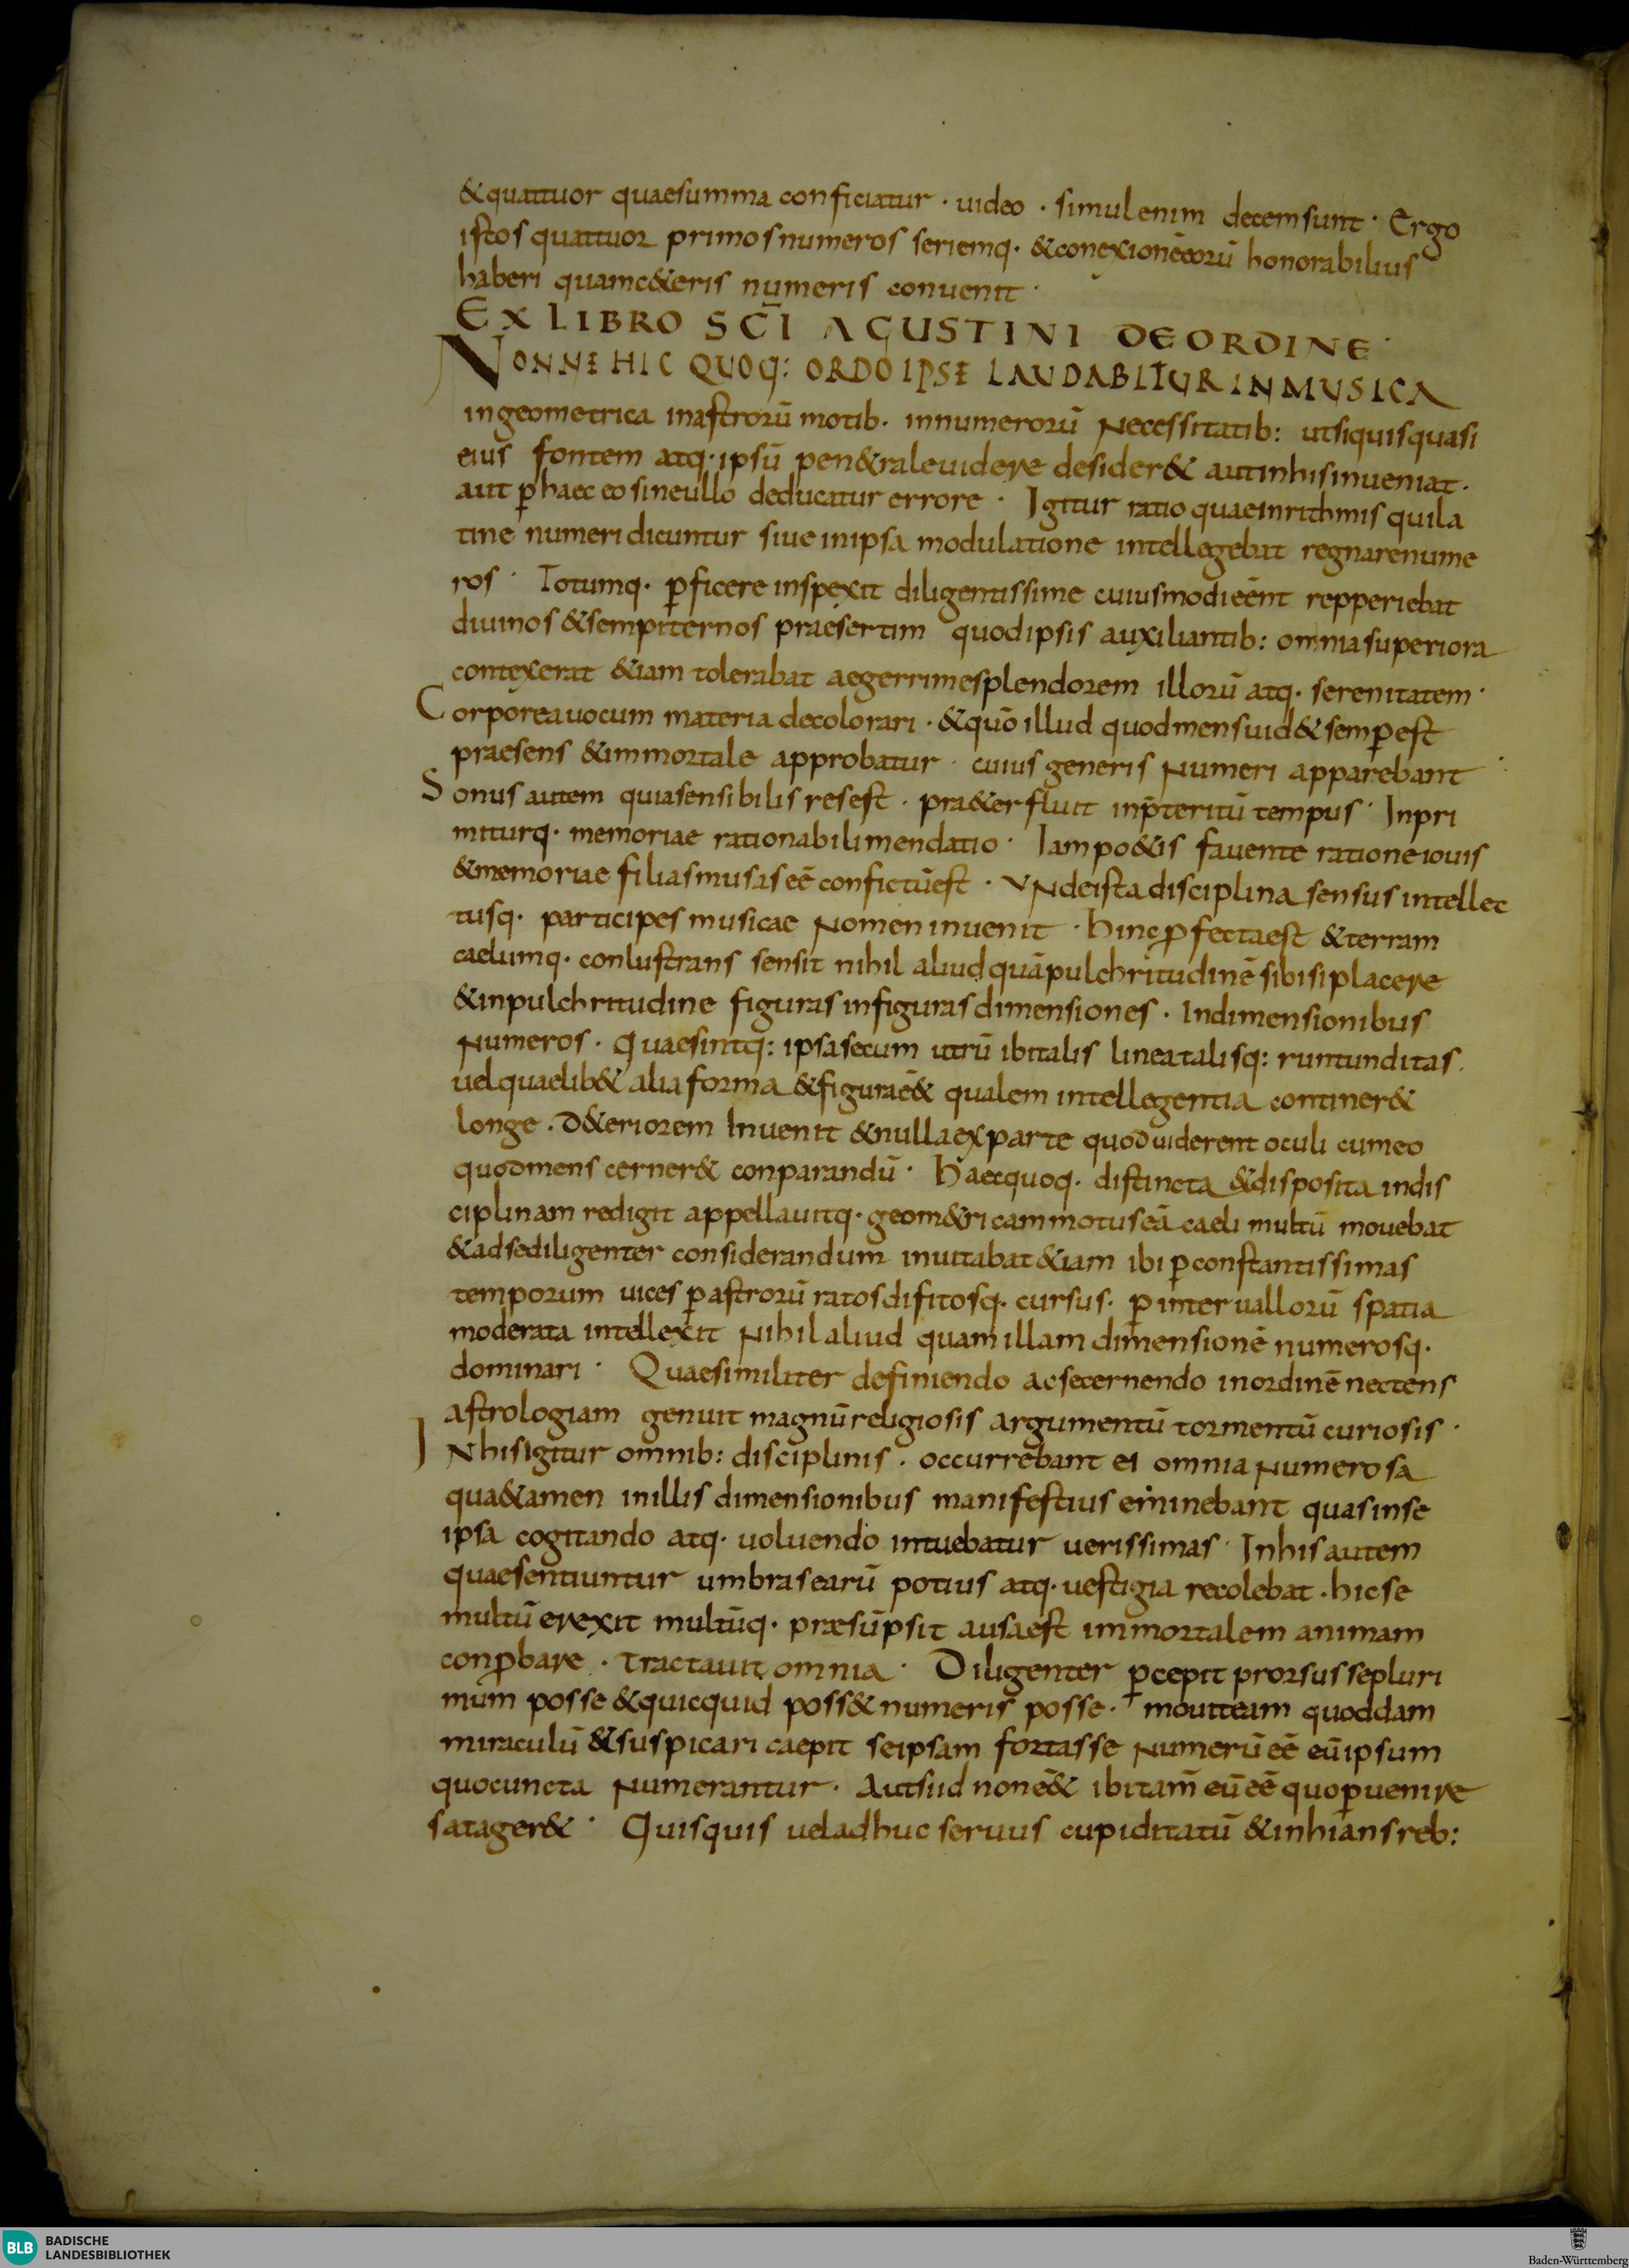 &quattuor quaesumma conficiatur · uideo · simulenim decemsunt · Ergo
istos quattuor primosnumeros seriemq· &conexionēeorū honorabilius
haberi quamc&eris numeris conuenit ·
EX LIBRO SC̄I AGUSTINI DEORDINE ·
NONNE HIC QUOQ: ORDO IPSE LAUDABITUR IN MUSICA
ingeometrica inastrorū motib· innumerorū Necessitatib: utsiquisquasi
eius fontem atq·ipsū pen&raleuidere desider& autinhisinueniat·
aut p̱haec eo sineullo deducatur errore · Igitur ratio quaeinrithmis quila
tine numeri dicuntur siue inipsa modulatione intellegebat regnarenume
ros · Totumq· p̱ficere inspexit diligentissime cuiusmodieēnt repperiebat
diuinos &sempiternos praesertim quodipsis auxiliantib: omniasuperiora
contexerat &iam tolerabat aegerrimesplendorem illorū atq· serenitatem ·
Corporeauocum materia decolorari · &quō illud quodmensuid& semp̱est
praesens &immortale approbatur · cuius generis Numeri apparebant
Sonus autem quiasensibilis resest · pra&erfluit inp̄teritū tempus · Inpri
miturq· memoriae rationabilimendatio · Iampo&is fauente rationeiouis
&memoriae filiasmusas eē confictūest · VNdeistadisciplina sensus intellec
tusq· participes musicae Nomen inuenit · hincp̱fectaest &terram
caelumq· conlustrans sensit nihil aliud quāpulchritudinē sibisiplacere
&inpulchritudine figuras infiguras dimensiones · Indimensionibus
Numeros · Quaesintq: ipsasecum utrū ibitalis lineatalisq: runtunditas ·
uelquaelib& alia forma &figuraē& qualem intellegentia continer&
longe · D&eriorem Inuenit &nullaexparte quoduiderent oculi cumeo
quodmens cerner& conparandū · haecquoq· distincta &disposita indis
ciplinam redigit appellauitq· geom&ricam motuseā caeli multū mouebat
&adsediligenter considerandum inuitabat &iam ibi p̱constantissimas
temporum uices p̱astrorū ratosdifitosq· cursus· p̱interuallorū spatia
moderata intellexit Nihilaliud quam illam dimensionē numerosq·
dominari · Quaesimiliter definiendo acsecernendo inordinē nectens
astrologiam genuit magnū religiosis argumentū tormentū curiosis ·
INhisigitur omnib: disciplinis · occurrebant ei omnia Numerosa
qua&amen inillis dimensionibus manifestius eminebant quasinse
ipsa cogitando atq· uoluendo intuebatur uerissimas · Inhis autem
quaesentiuntur umbras earū potius atq·uestigia recolebat · hicse
multū erexit multūq· praesūpsit ausaest immortalem animam
conp̱bare · tractauit omnia · Diligenter p̱cepit prorsus sepluri
mum posse &quicquid poss& numeris posse · mouiteam quoddam
miraculū &suspicari caepit seipsam fortasse Numerū eē eūipsum
quocuncta Numerantur · Autsiid nonē& ibitam̄ eū eē quop̱uenire
satager& · Quisquis ueladhuc seruus cupiditatū &inhiansreb:
BLB BADISCHE
LANDESBIBLIOTHEK
Baden-Württemberg